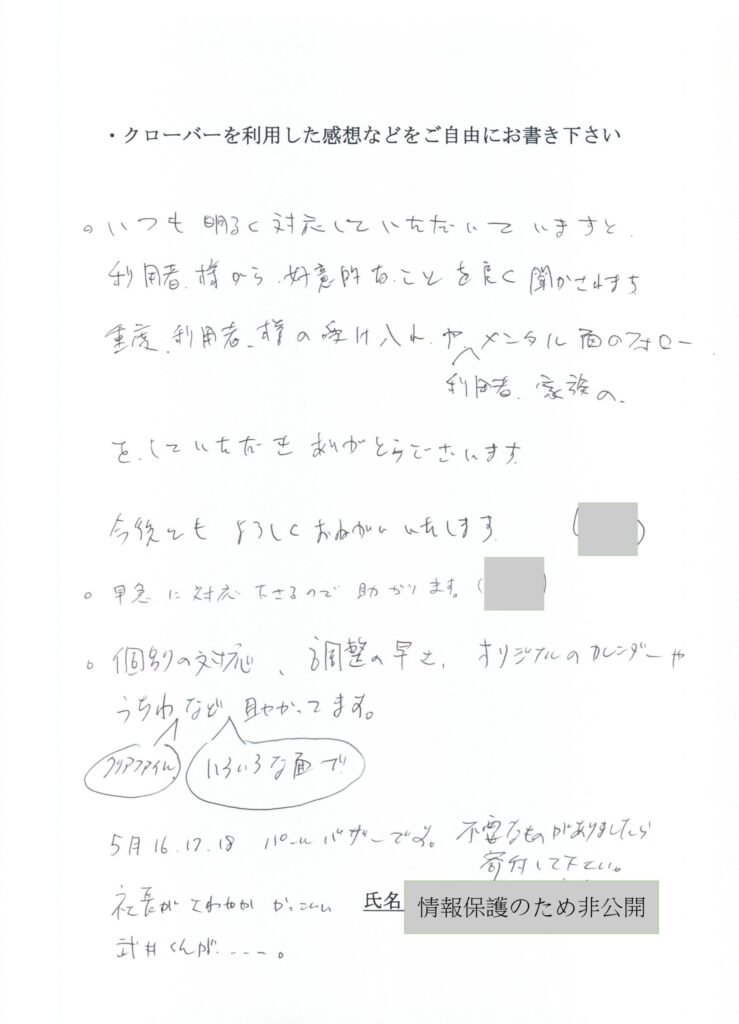 ・クローバーを利用した感想などをご自由にお書き下さい
○いつも明るく対応していただいていますと
利用者、様から、好意的な、ことを良く聞かされます
重度、利用者、様の受け入れ、や、メンタル面のフォロー
利用者、家族の、
を、していただきありがとうございます
今後とも よろしくおねがいいたします ( )
○ 早急に対応下さるので助かります。( )
○ 個別の対応、調整の早さ、オリジナルのカレンダーや
うちわなど助かってます。
クリアファイル いろいろな面で
5月16.17.18 パールバザーです。不要なものがありましたら
寄付して下さい。
社長がさわやかかっこいい 氏名 情報保護のため非公開
武井くんが、----。